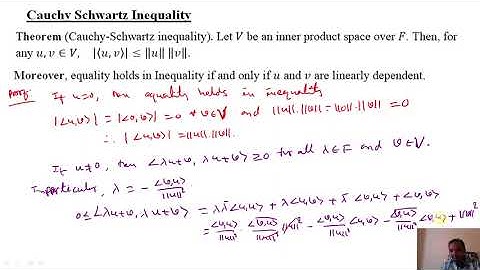 Cauchy Schwartz Inequality
Theorem (Cauchy-Schwartz inequality). Let V be an inner product space over F. Then, for
any u, v ∈ V, |⟨u, v⟩| ≤ ‖u‖ ‖v‖.
Moreover, equality holds in Inequality if and only if u and v are linearly dependent.
Proof: If u=0, then equality holds in inequality
|<u,v>| = |<0,v>| = 0 ∀ v∈V and ||u||.||v|| = ||0||.||v|| = 0
∴ |<u,v>| = ||u||.||v||.
If u≠0, then <λu+v, λu+v> ≥0 for all λ∈F and v∈V.
In particular, λ = - <v,u>/||u||²
0≤ <λu+v, λu+v> = λλ̄<u,u> + λ<u,v> + λ̄ <v,u> + <v,v>